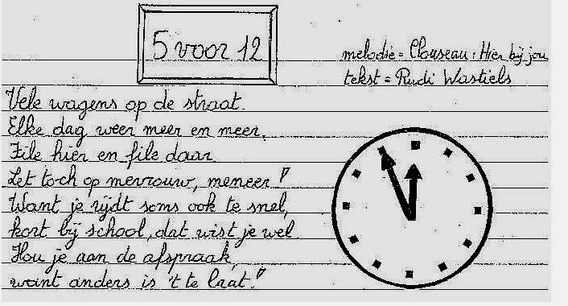 5 voor 12
melodie = Clouseau : Hier bij jou
tekst = Rudi Wastiels
Vele wagens op de straat.
Elke dag weer meer en meer.
File hier en file daar
Let toch op mevrouw, meneer!"
Want je rijdt soms ook te snel,
kort bij school, dat wist je wel
Hou je aan de afspraak,
want anders is 't te laat!"